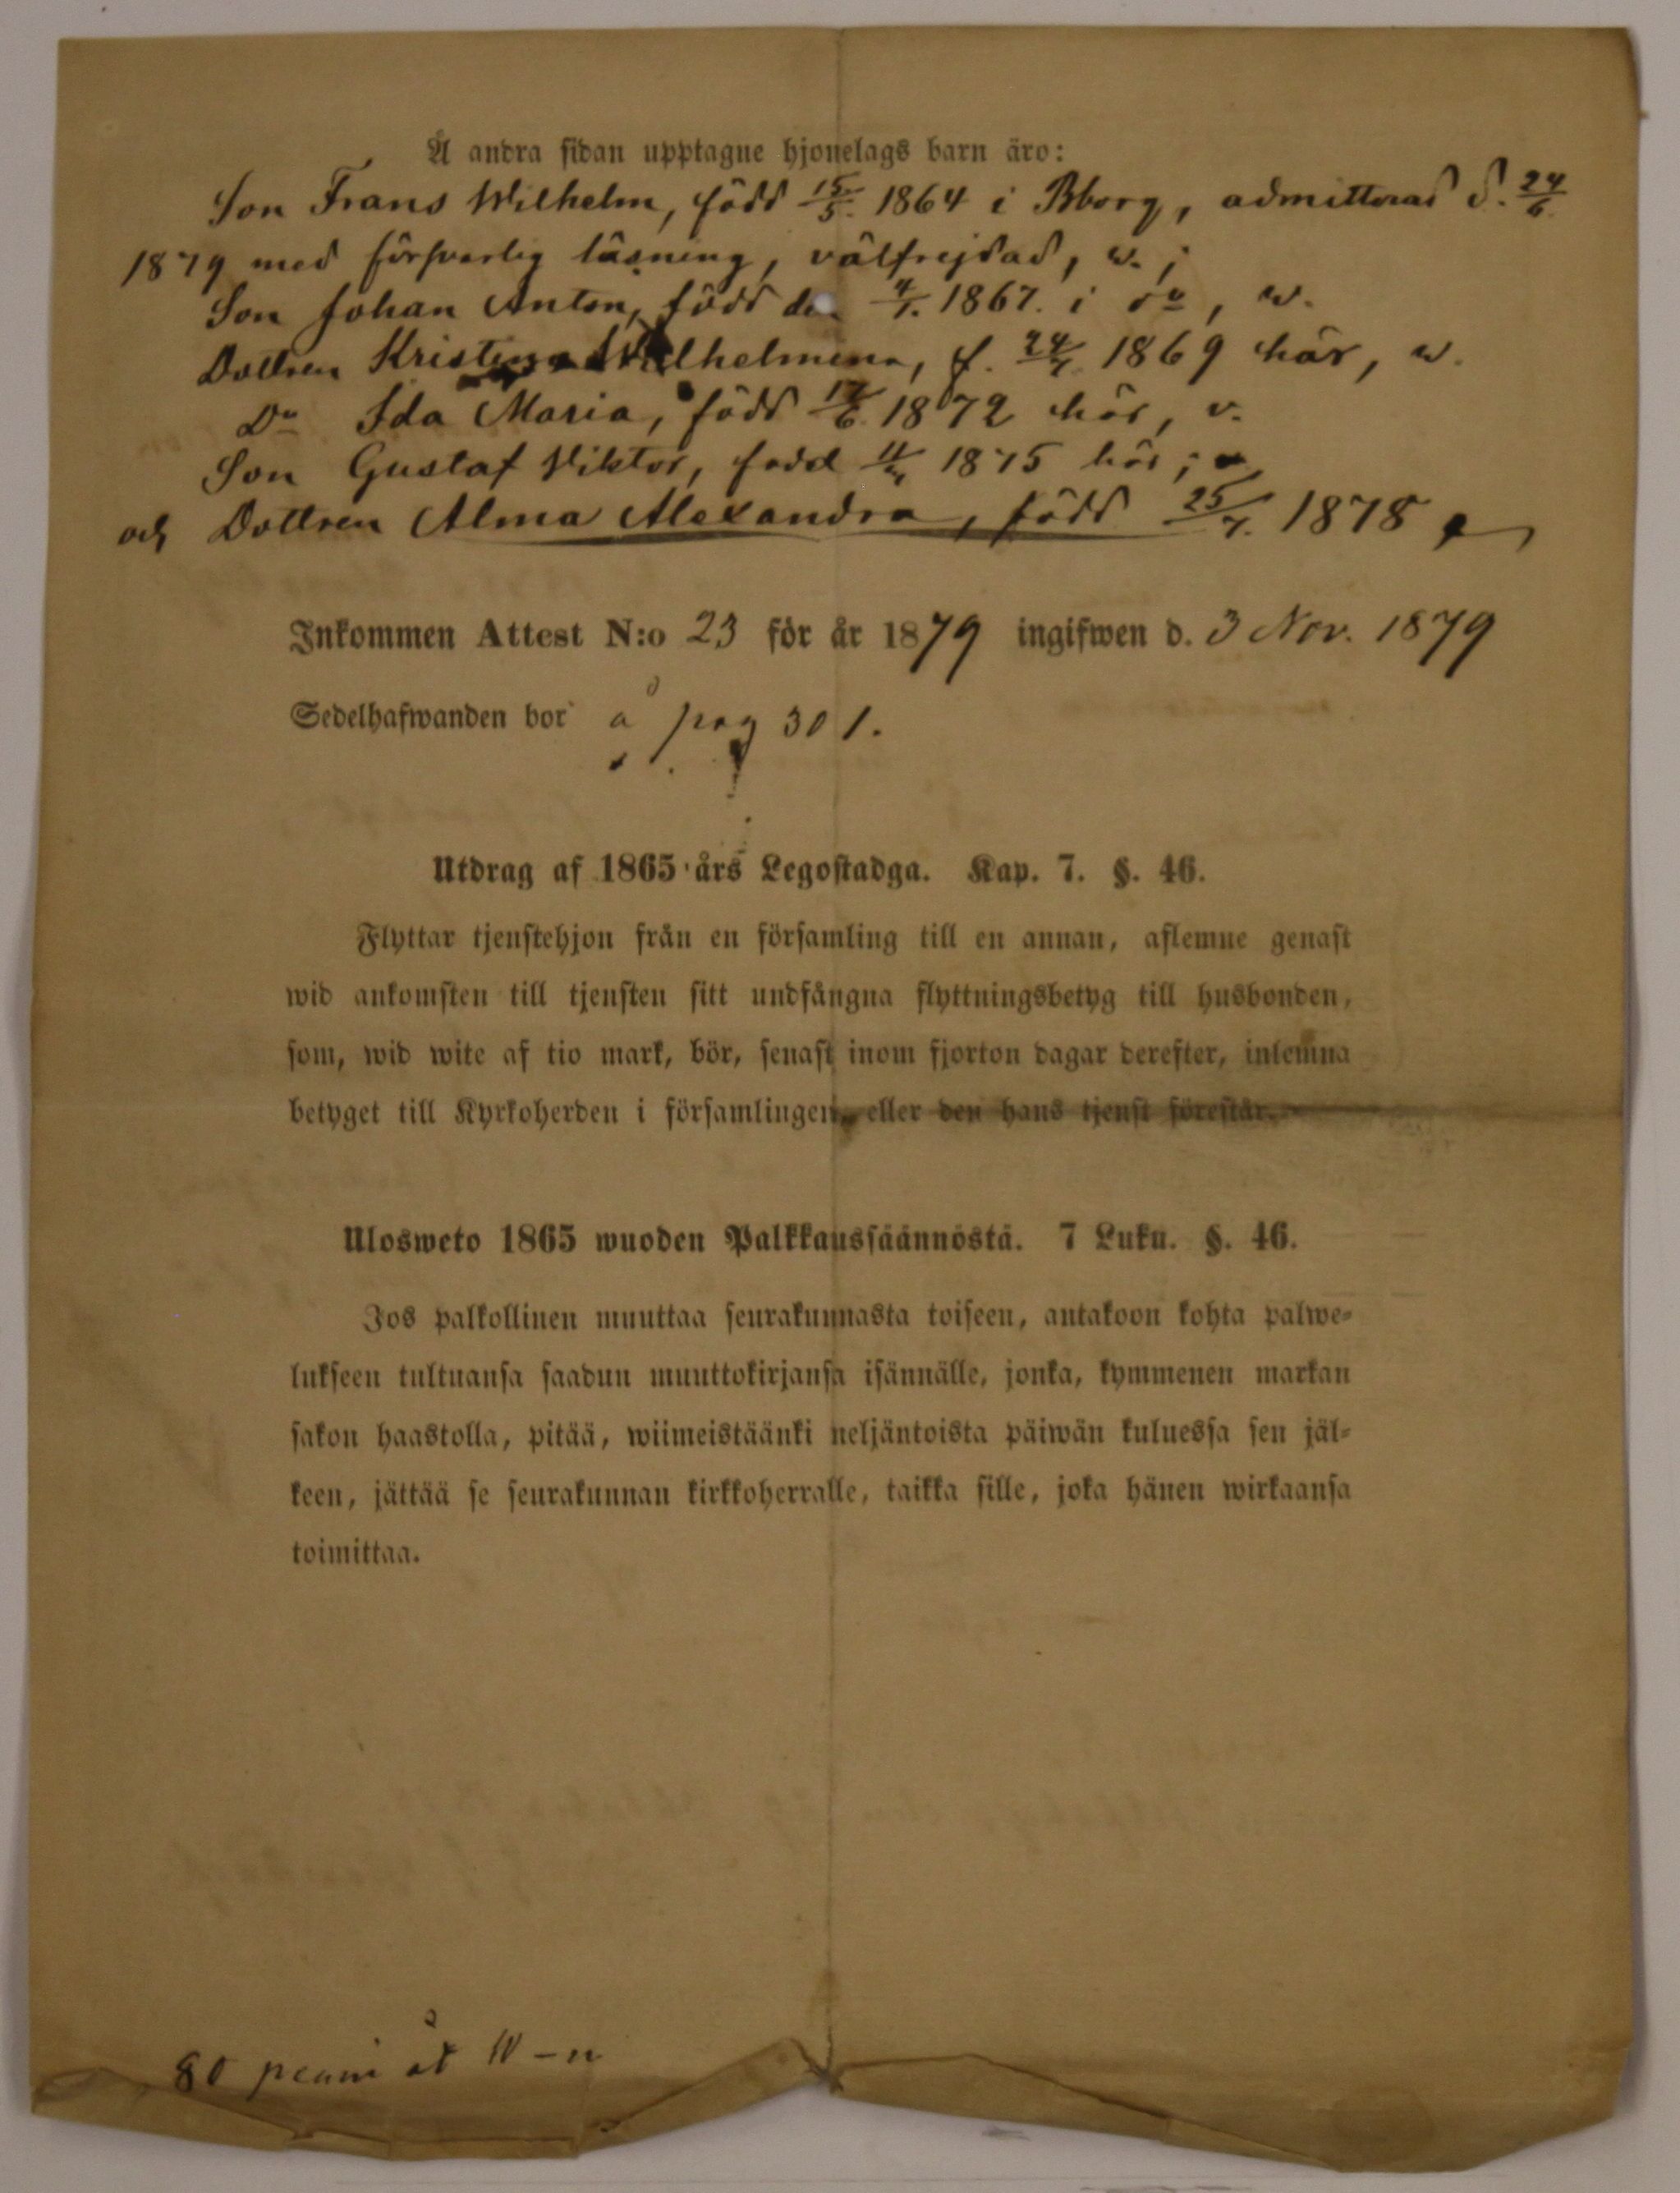 Å andra sidan upptagne hjonelags barn äro:
Son Frans Wilhelm, född 15/5. 1864 i Bborg, admitterad d. 24/6.
1879 med försvarlig läsning, välfrejdad, w.;
Son Johan Anton, född den 4/1. 1867. i do, w.
Dottren Kristina Wilhelmina, f. 24/7 1869 här, w.
Do Ida Maria, född 17/6. 1872 här, v.
Son Gustaf Viktor, född 11/4 1875 här;
och Dottren Alma Alexandra, född 25/7. 1878
Inkommen Attest N:o 23 för år 1879 ingifwen d. 3 Nov. 1879
Sedelhafwanden bor å pag 301.
Utdrag af 1865 års Legostadga. Kap. 7. §. 46.
Flyttar tjenstehjon från en församling till en annan, aflemne genast
wid ankomsten till tjensten sitt undfångna flyttningsbetyg till husbonden,
som, wid wite af tio mark, bör, senast inom fjorton dagar derefter, inlemna
betyget till Kyrkoherden i församlingen, eller den hans tjenst förestår.
Ulosweto 1865 wuoden Palkkaussäännöstä. 7 Luku. §. 46.
Jos palkollinen muuttaa seurakunnasta toiseen, antakoon kohta palwe-
lukseen tultuansa saadun muuttokirjansa isännälle, jonka, kymmenen markan
sakon haastolla, pitää, wiimeistäänki neljäntoista päiwän kuluessa sen jäl-
keen, jättää se seurakunnan kirkkoherralle, taikka sille, joka hänen wirkaansa
toimittaa.
80 penni åt W-n